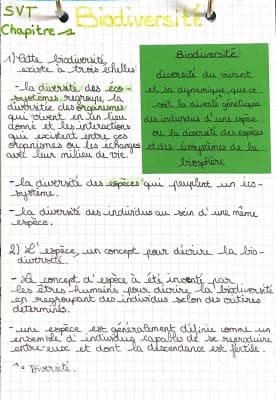 SVT
Biodiversité
Chapitre 1
1) Cette biodiversité
existe à trois échelles:
- la diversité des éco-
systèmes regroupe la
diversité des organismes
qui vivent en un lieu
donné et les interactions
qui existent entre ces
organismes ou les échanges
avec leur milieu de vie.
Biodiversité:
diversité du vivant
et sa dynamique, que ce
soit la diversité génétique
des individus d'une espèce
ou la diversité des espèces
et des écosystèmes de la
biosphère
- la diversité des espèces qui peuplent un éco-
système.
- la diversité des individus au sein d'une même
espèce.
2) L'espèce, un concept pour décrire la bio-
diversité
- Le concept d'espèce à été inventé par
les êtres-humains pour décrire la biodiversité
en regroupant des individus selon des critères
determinés.
- une espèce est généralement définie comme un
ensemble d'individus capables de se reproduire
entre-eux et dont la descendance est fertile.